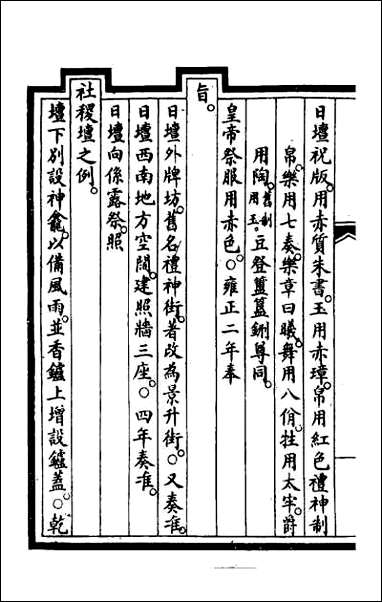 日壇祝版。用赤質朱書。玉用赤璋。帛用紅色禮神制
帛。樂用七奏。樂章曰曦。舞用八佾。牲用太牢。爵
用陶。舊制用玉。豆登簠簋鉶尊同。
皇帝祭服用赤色。○雍正二年奉
旨。
日壇外牌坊。舊名禮神街。著改為景升街。○又奏准。
日壇西南地方空闊。建照牆三座。○四年奏准。
日壇向係露祭。照
社稷壇之例。
壇下別設神龕。以備風雨。並香鑪上增設鑪蓋。○乾